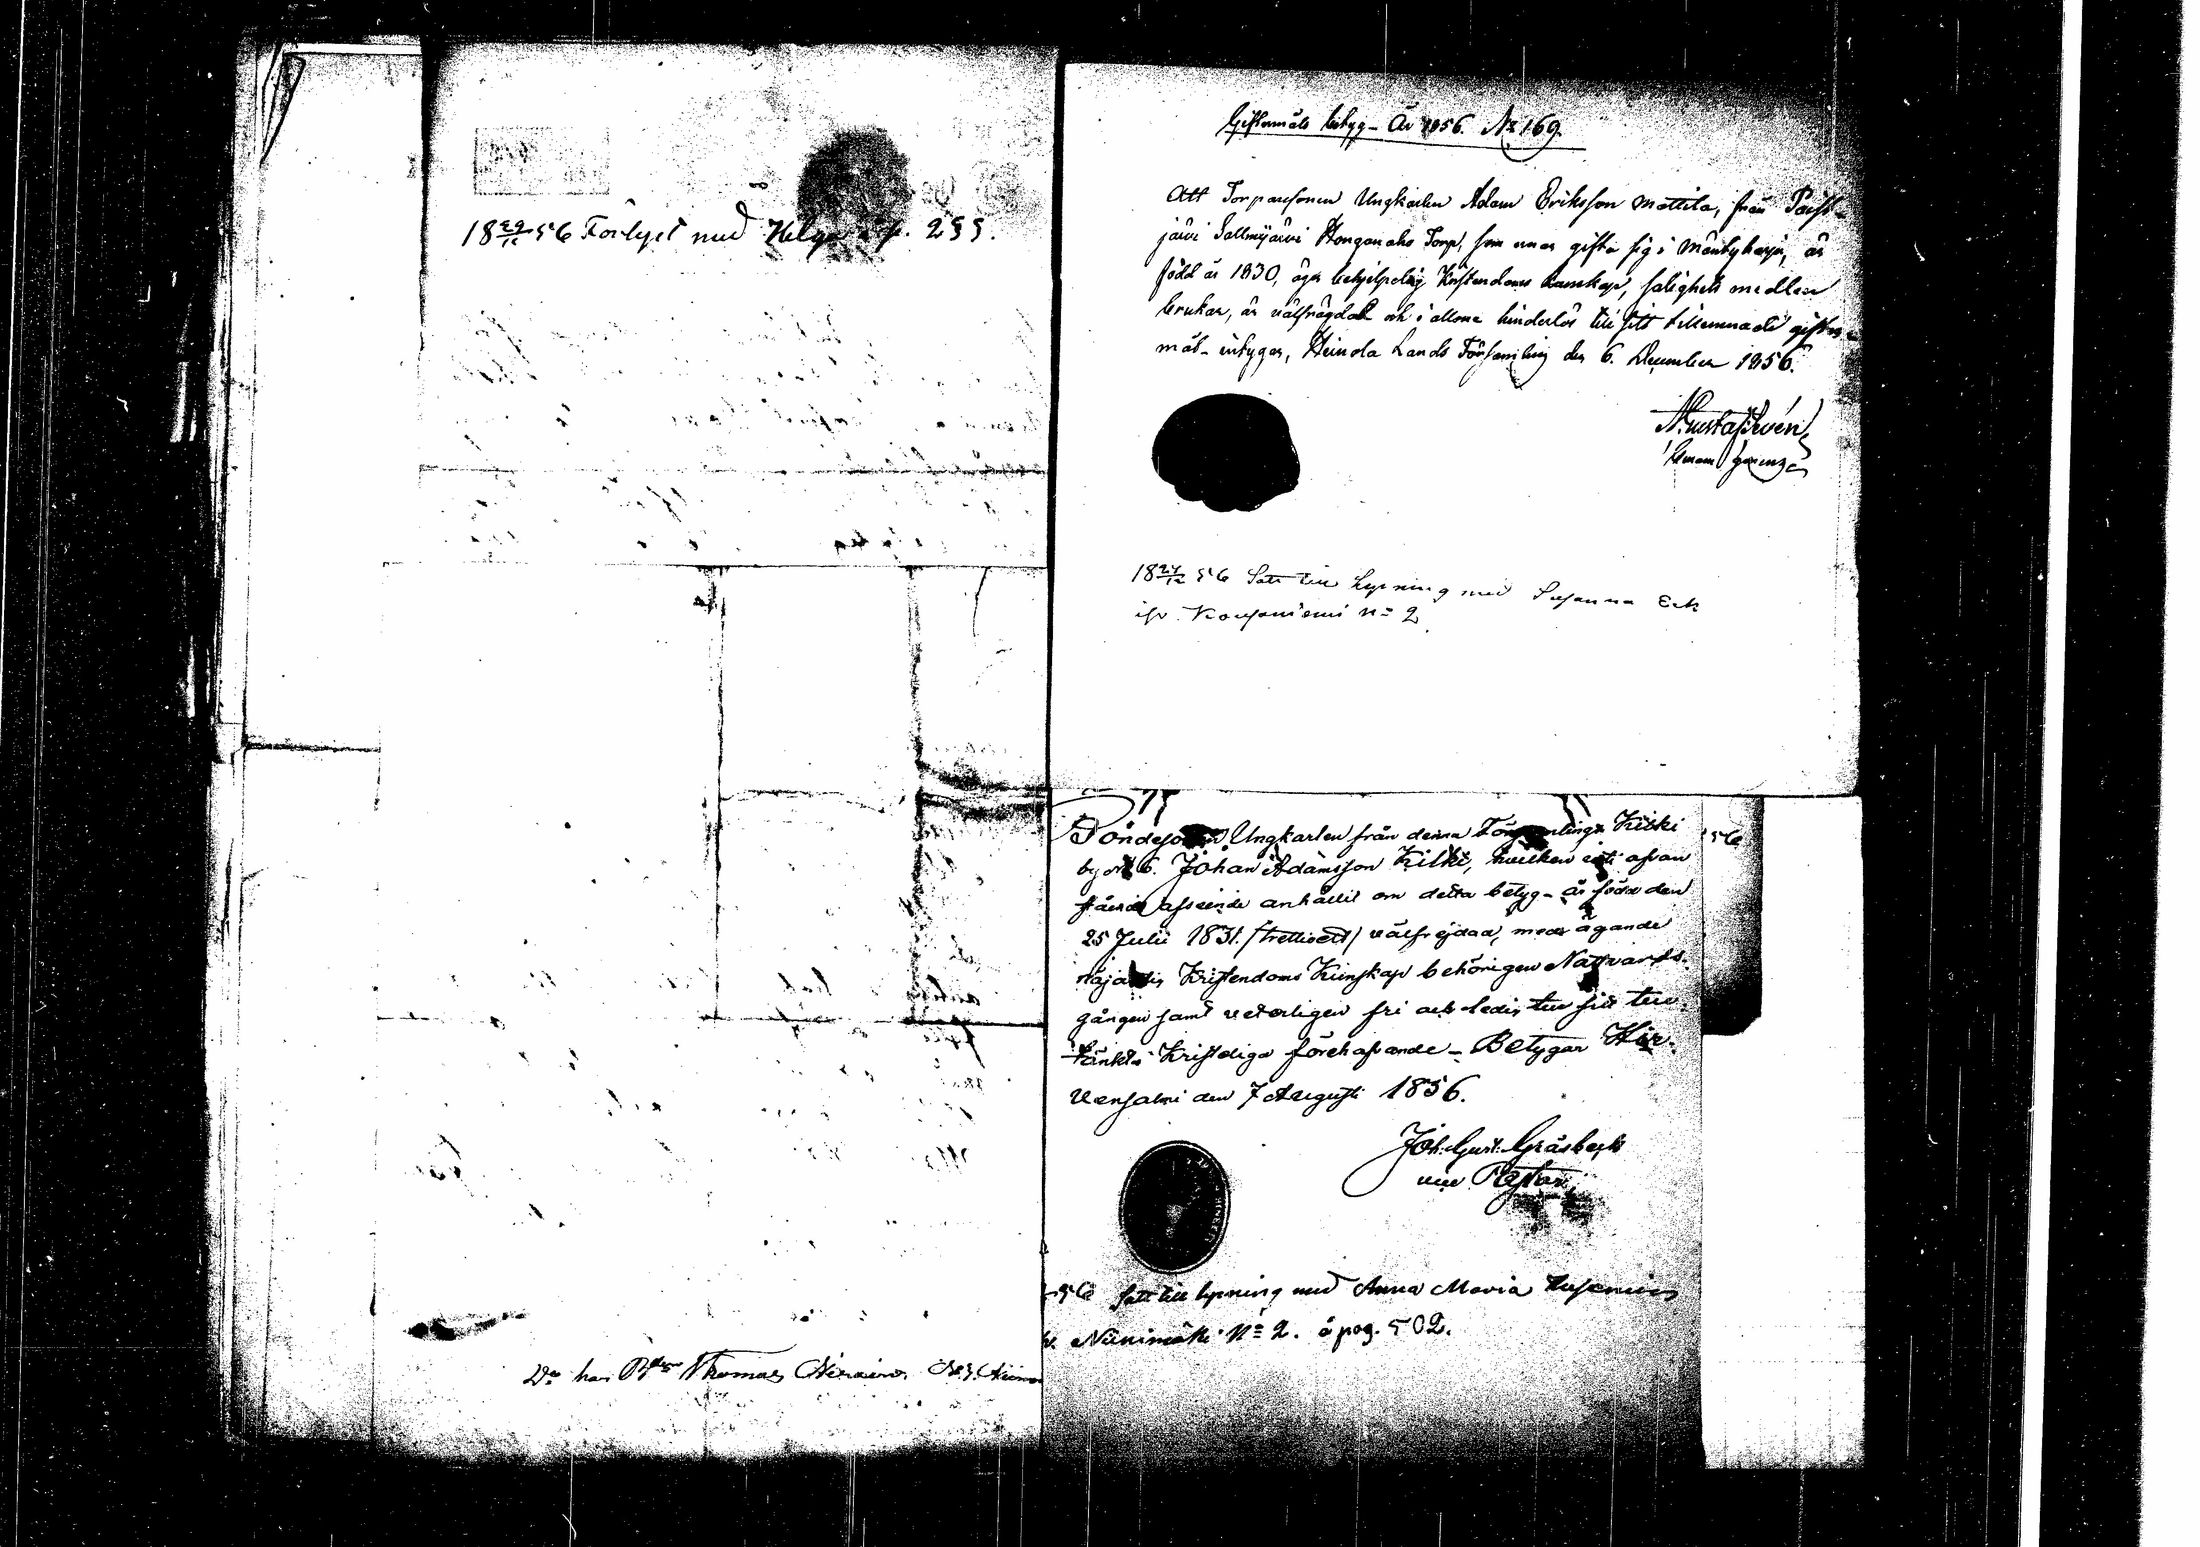 18 29/12 56 Förlyst med Helga å p. 255.
Do har Thomas
Giftermåls betyg – År 1856. No 169.
Att Torparsonen Ungkarlen Adam Eriksson Mattila, från Paist-
järvi Torp, som ernar gifta sig i Mäntyharju, är
född år 1830, äger behjelpelig Kristendoms kunskap, salighets medlen
brukar, är välfrägdad och i allone hinderlös till sitt tillernnade gifter-
mål – intygar, Heinola Lands Församling den 6. December 1856.
18 27/12 56 Satt till lysning med Susanna Erik
No 2
Bondesonen Ungkarlen från denna Församlings Kilki
by No 6. Johan Adamsson Kilki, hvilken uti afvan
afseende anhållit om detta betyg – är födder den
25 Julii 1831. /trettioett/ välfrejdad, med ägande
nöjaktig Kristendoms Kunskap behörigen Nattvards-
gången samt veterligen fri och ledig till sitt till-
tänkta Kristeliga förehafvande – Betygar Hir-
vensalmi den 7 Augusti 1856.
Joh. Gust. Gråsbeck
vice Pastor
56 Satt till lysning med Anna Maria
Niinimäki No 2. å pag. 502.
56